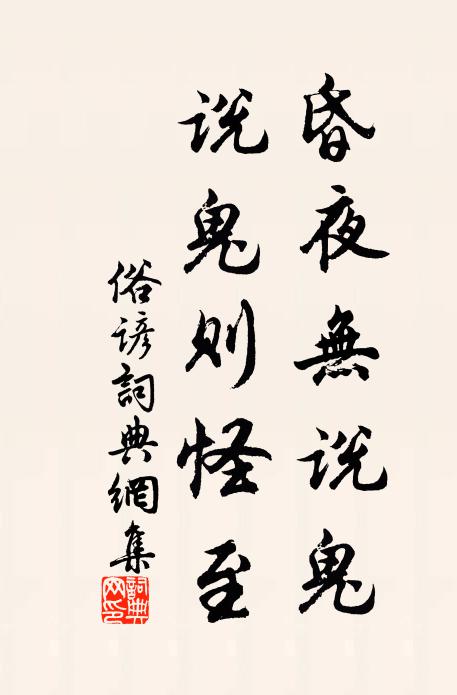 昏夜無说鬼
说鬼则怪至
俗谚詞典網集
詞典网印